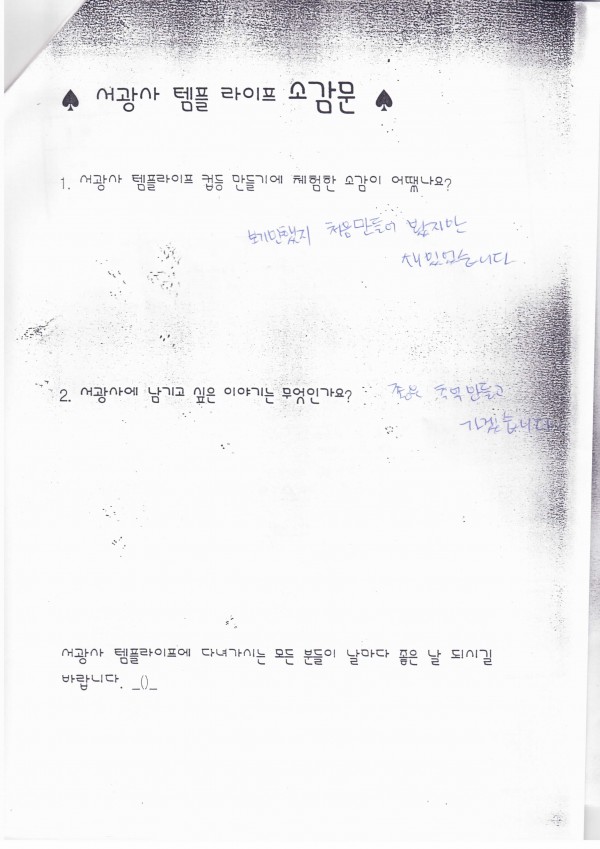 ♠ 서광사 템플 라이프 소감문 ♠
1. 서광사 템플라이프 컵등 만들기에 체험한 소감이 어땠나요?
보기만했지 처음만들어 봤지만
재밌었습니다
2. 서광사에 남기고 싶은 이야기는 무엇인가요?
좋은 추억 만들고
가겠습니다
서광사 템플라이프에 다녀가시는 모든 분들이 날마다 좋은 날 되시길
바랍니다. _()_